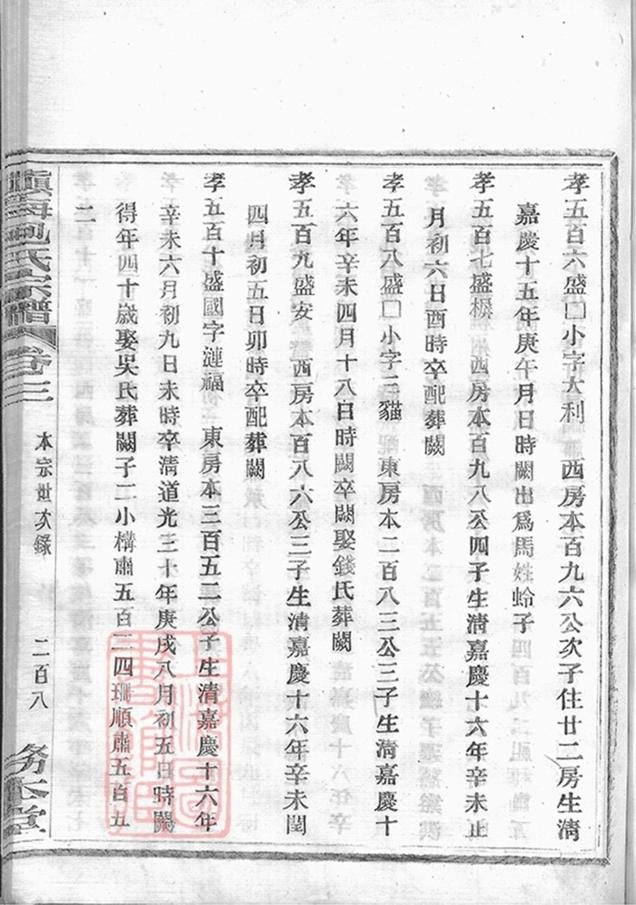 孝五百六盛□小字大利　西房本百九六公次子住廿二房生清
嘉慶十五年庚午月日時闕出爲馬姓蛉子
孝五百七盛楙　西房本百九八公四子生清嘉慶十六年辛未正
月初六日酉時卒配葬闕
孝五百八盛□小字三貓　東房本二百八三公三子生清嘉慶十
六年辛未四月十八日時闕卒闕娶錢氏葬闕
孝五百九盛安　西房本百八六公三子生清嘉慶十六年辛未閏
四月初五日卯時卒配葬闕
孝五百十盛國字漣福　東房本三百五二公子生清嘉慶十六年
辛未六月初九日未時卒清道光三十年庚戌八月初五日時闕
得年四十歲娶吳氏葬闕子二小構肅五百三四珊順肅五百五
二
鎮海包氏宗譜　卷三　本宗世次錄　二百八　務本堂